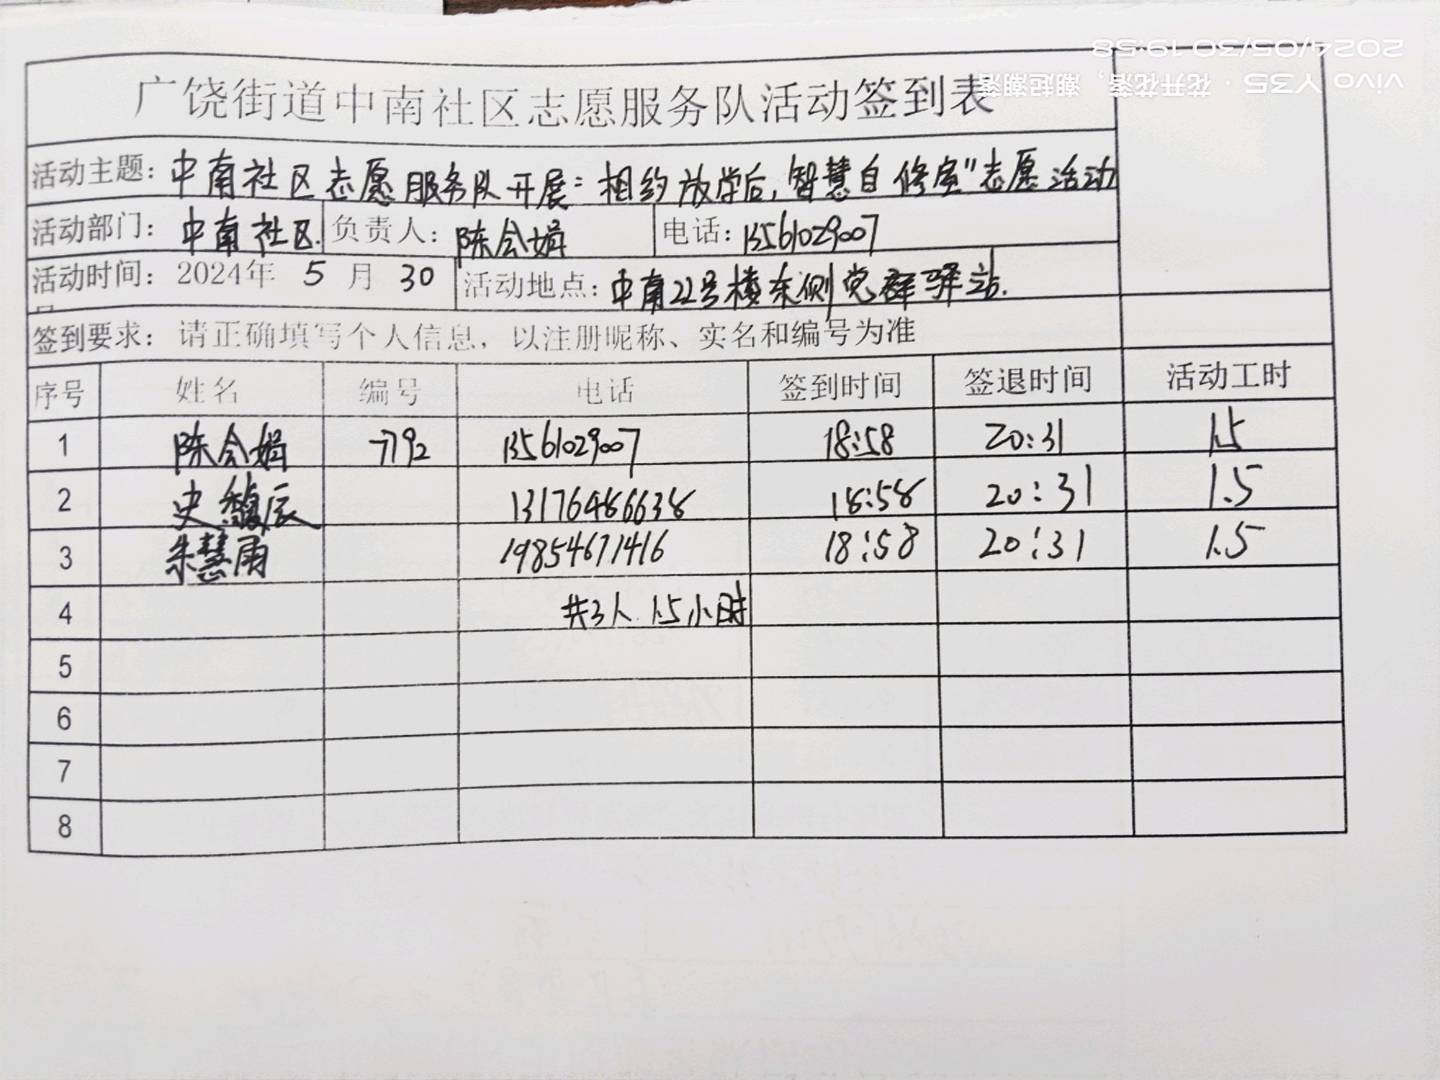 广饶街道中南社区志愿服务队活动签到表
活动主题：中南社区志愿服务队开展：相约放学后，智慧自修室"志愿活动
活动部门：中南社区. 负责人：陈会娟 电话：13561029007
活动时间：2024年 5 月 30 活动地点：中南22号楼东侧党群驿站.
签到要求：请正确填写个人信息，以注册昵称、实名和编号为准
序号 姓名 编号 电话 签到时间 签退时间 活动工时
1 陈会娟 7792 13561029007 18:58 20:31 1.5
2 史馥辰 13176486638 18:58 20:31 1.5
3 朱慧雨 19854671416 18:58 20:31 1.5
4 共3人.1.5小时
5
6
7
8
vivo Y35 · 花开花落，潮起潮落
2024/05/30 19:58